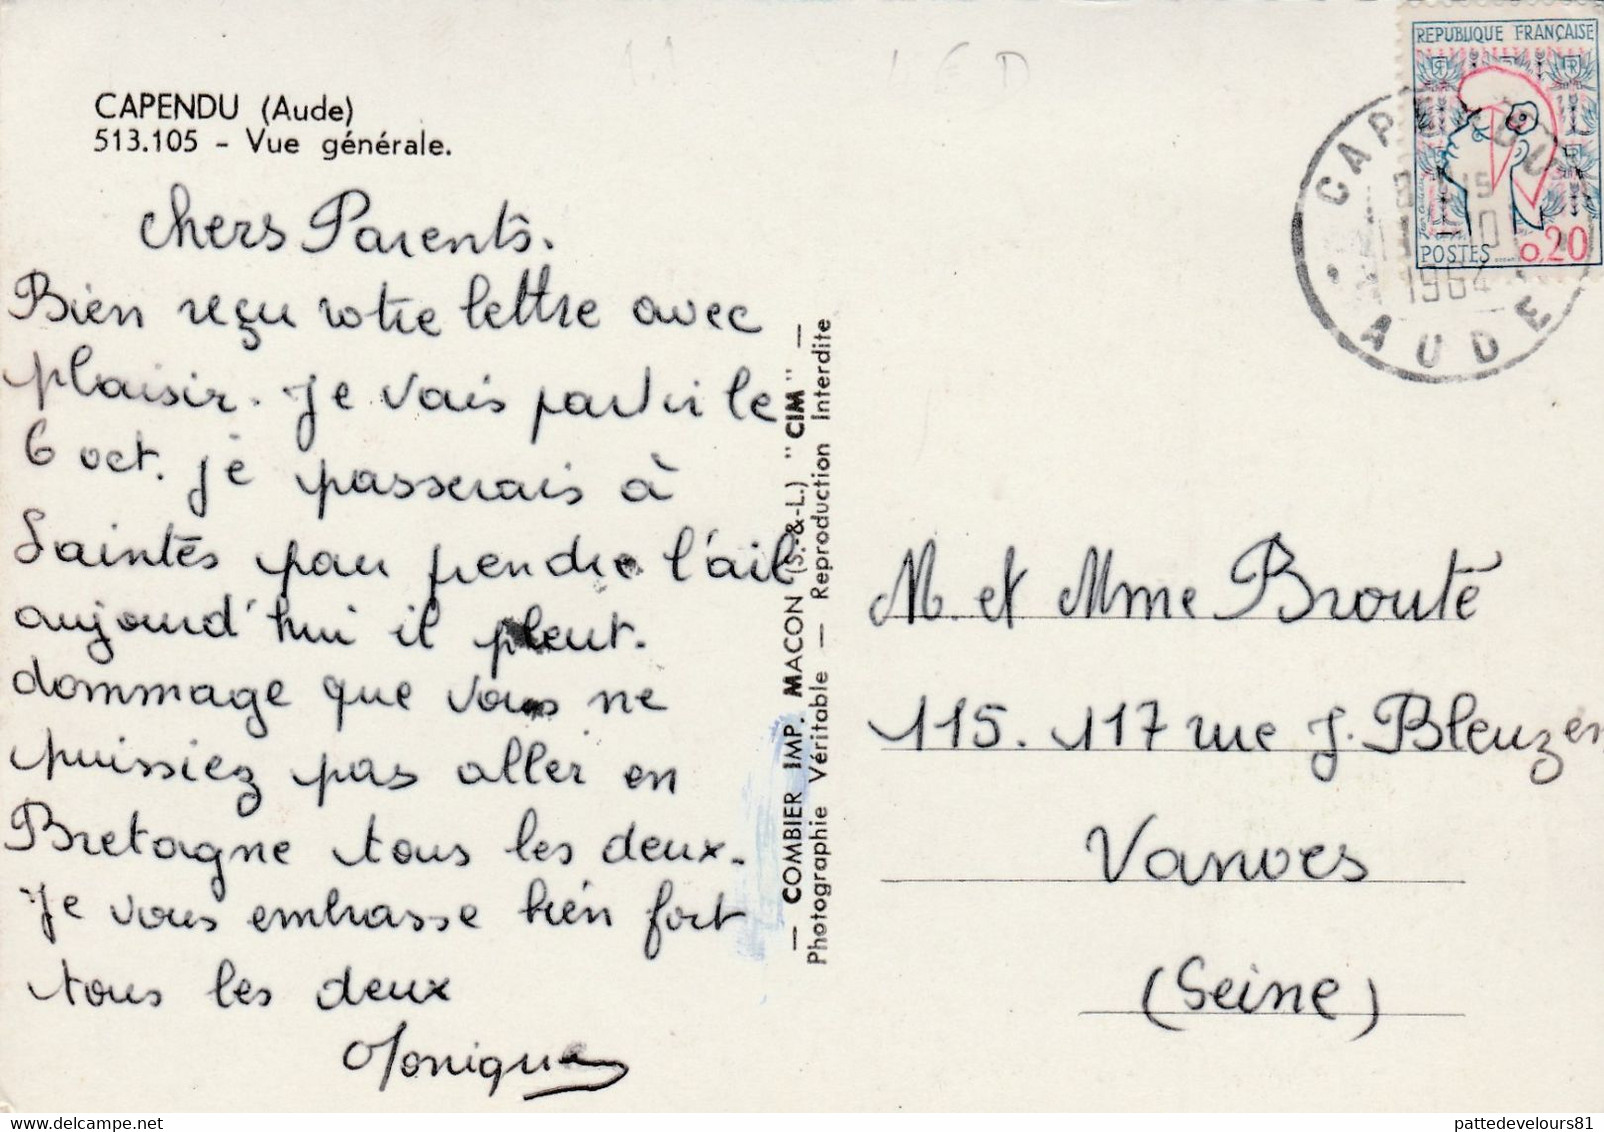 CAPENDU (Aude)
513.105 - Vue générale.
chers Parents.
Bien reçu votre lettre avec
plaisir. Je vais partir le
6 oct. je passerais à
Saintes pour prendre l'ail
aujourd'hui il pleut.
dommage que vous ne
puissiez pas aller en
Bretagne tous les deux.
Je vous embrasse bien fort
tous les deux
Monique
— COMBIER IMP. MACON (S.-&-L.) "CIM" —
Photographie Véritable — Reproduction Interdite
REPUBLIQUE FRANÇAISE
POSTES 0,20
CAPENDU
1964
AUDE
M. et Mme Brouté
115. 117 rue J. Bleuzen
Vanves
(Seine)
www.delcampe.net
pattedevelours81